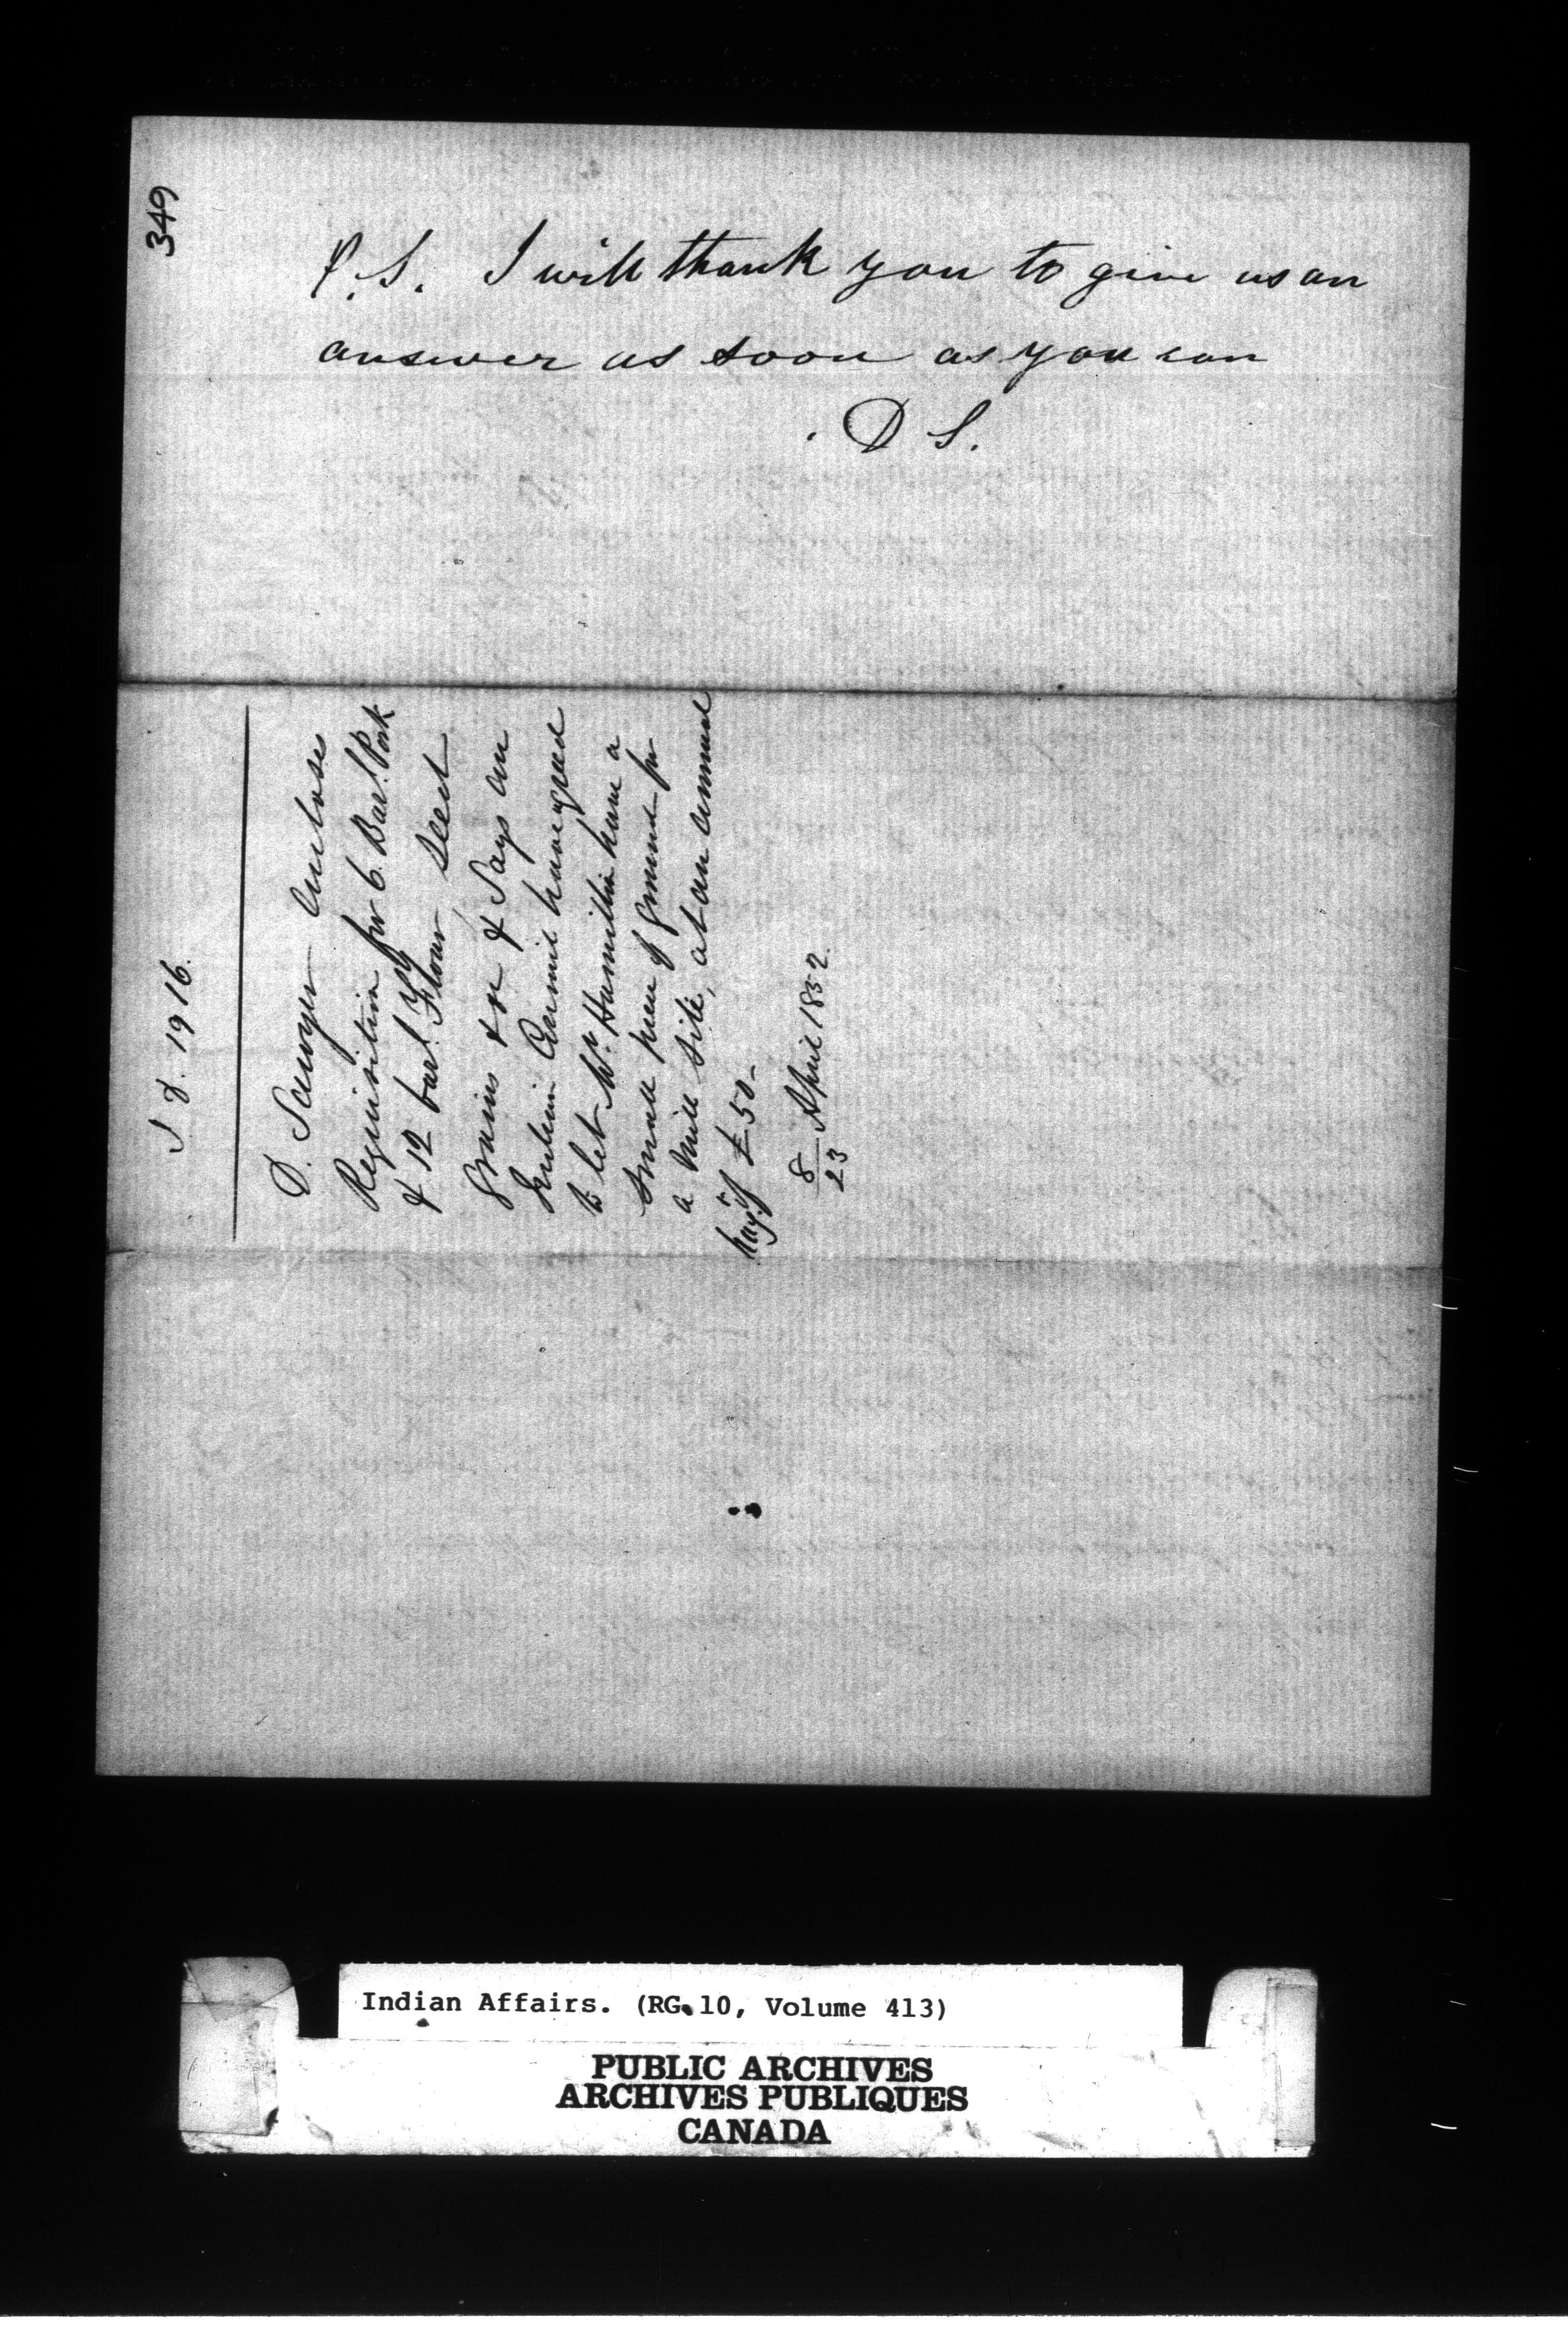 349
P.S. I will thank you to give us an
answer as soon as you can
D S.
1916.
D. Sawyer Enclose
Requisition for 6 Barl. Pork
& 12 barl. Flour, seed
grains &c & Says an
Indian Council have agreed
to let Mr. Hamilton have a
small piece of ground for
a Mill Site, at an annual
of £50-
8/23 April 1852.
Indian Affairs. (RG.10, Volume 413)
PUBLIC ARCHIVES
ARCHIVES PUBLIQUES
CANADA